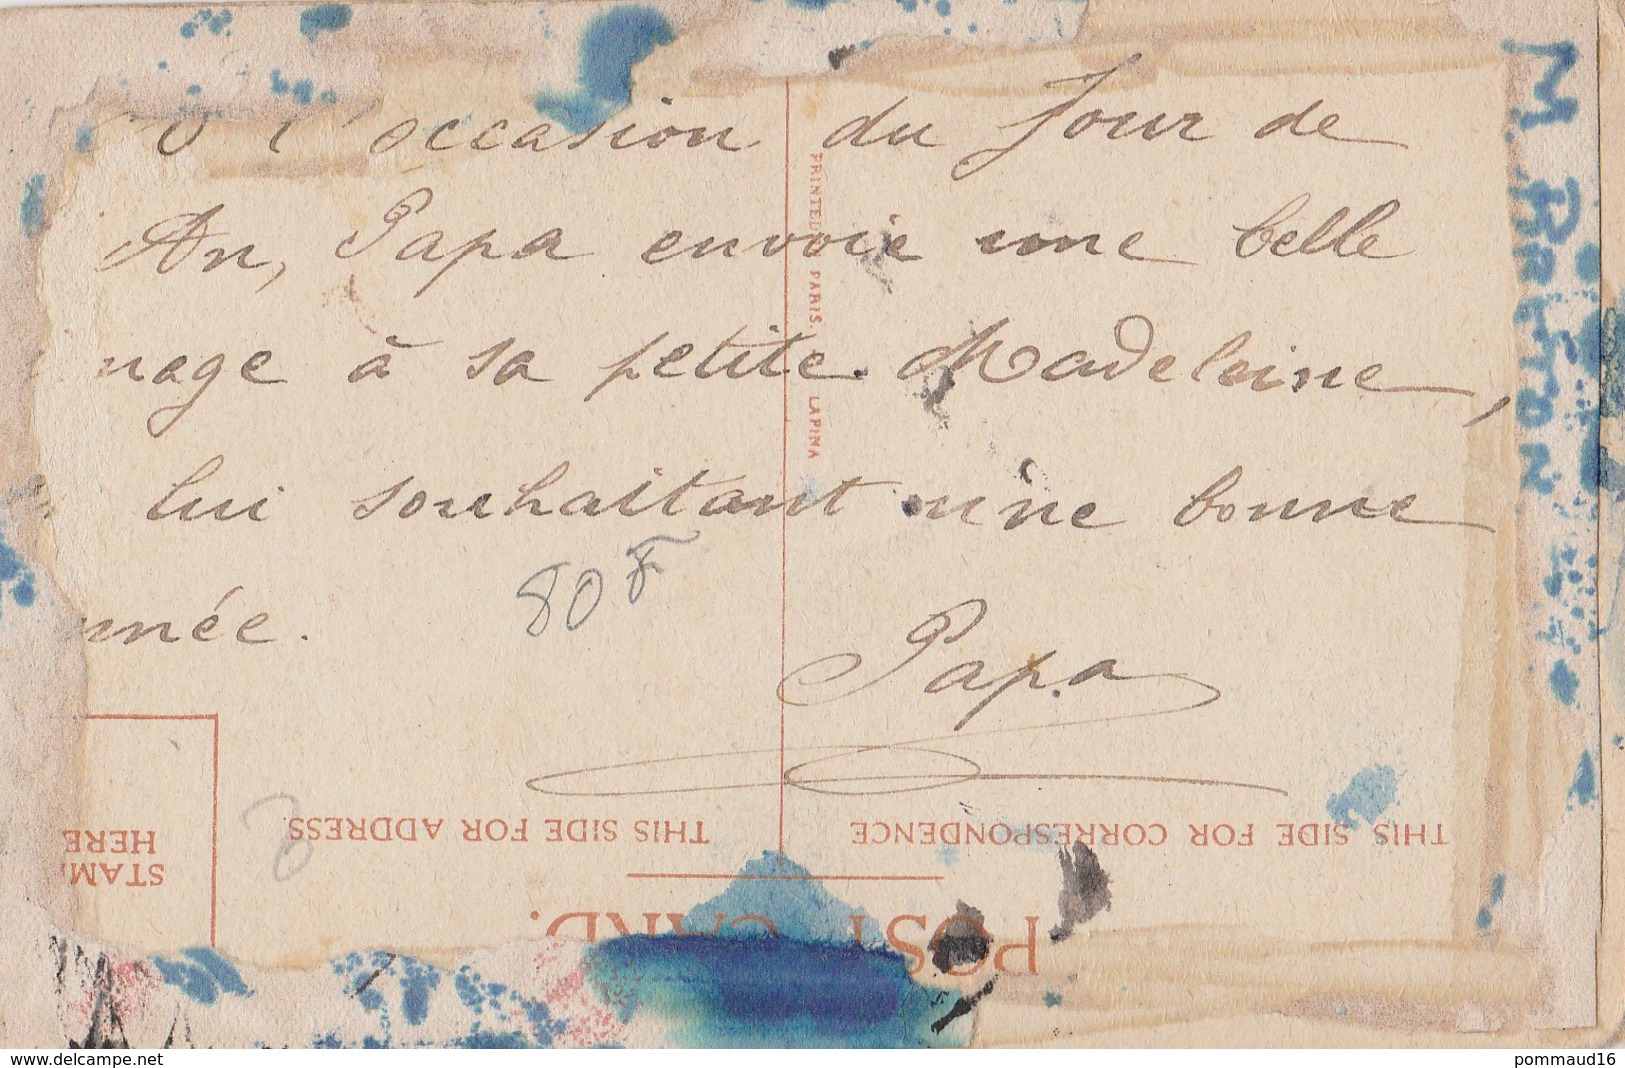 l'occasion du Jour de
An, Papa envoie une belle
nage à sa petite Madeleine,
lui souhaitant une bonne
nnée.
Papa
80 F
M BRETON
PRINTED IN PARIS. LAPINA
THIS SIDE FOR CORRESPONDENCE
THIS SIDE FOR ADDRESS.
POST CARD.
STAM
HERE
www.delcampe.net
pommaud16